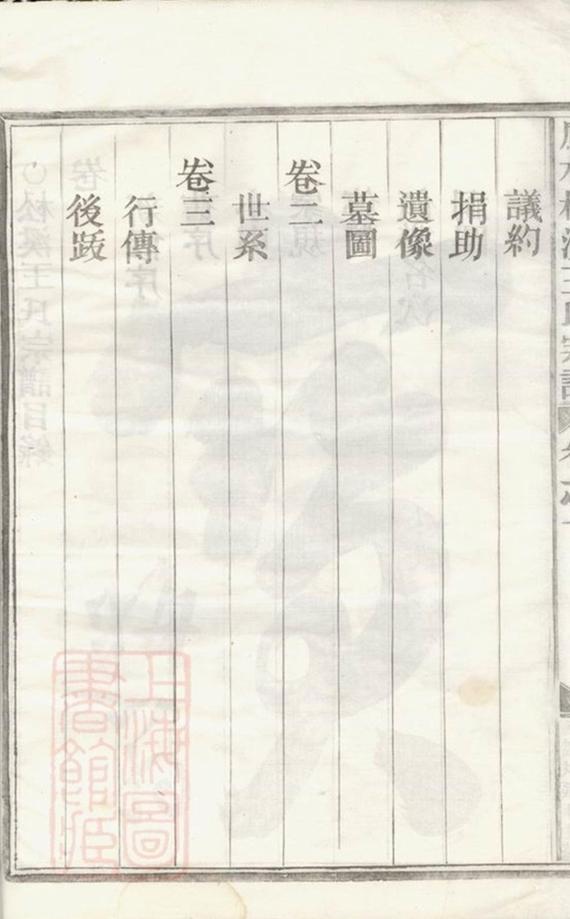 議約
捐助
遺像
墓圖
卷二
世系
卷三
行傳
後跋
上海圖書館藏